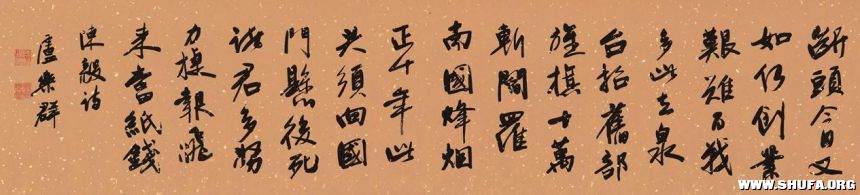 斷頭今日意
如何創業
艱難百戰
多此去泉
台招舊部
旌旗十萬
斬閻羅
南國烽烟
正十年此
头須向國
門懸後死
諸君多努
力捷報飛
来當紙錢
陳毅詩
盧樂群
WWW.SHUFA.ORG